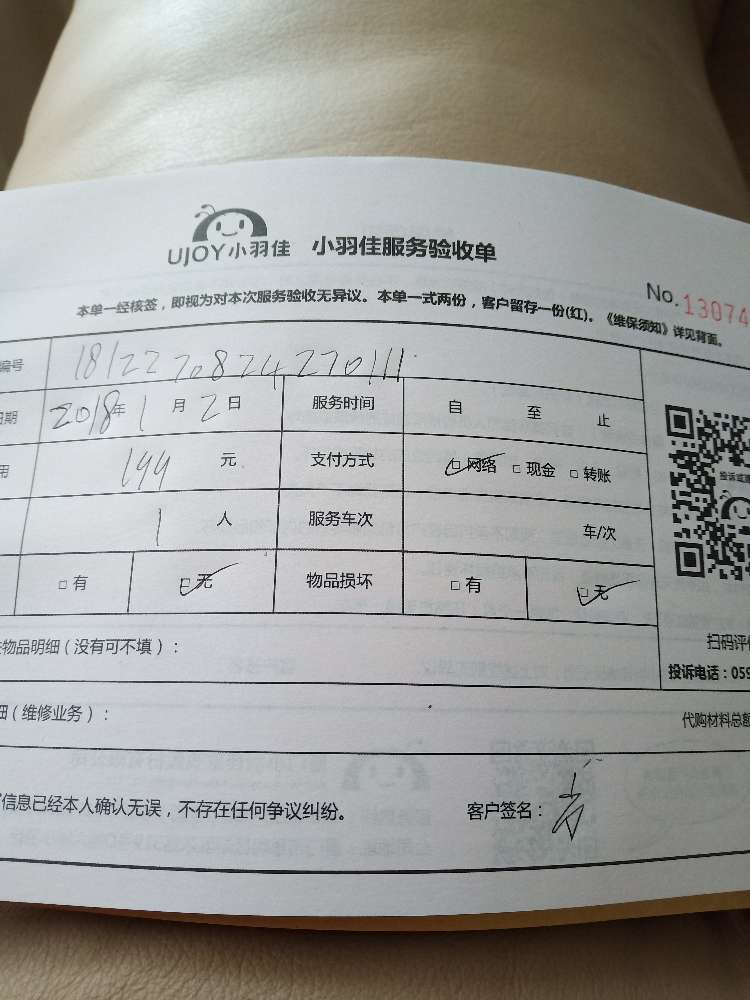 UJOY小羽佳 小羽佳服务验收单
No.13074
本单一经核签，即视为对本次服务验收无异议。本单一式两份，客户留存一份(红)。《维保须知》详见背面。
编号 1812270824270111
日期 2018年1月2日 服务时间 自 至 止
用 199 元 支付方式 □网络 □现金 □转账
1 人 服务车次 车/次
□有 □无 物品损坏 □有 □无
物品明细（没有可不填）：
扫码评
投诉电话：059
细（维修业务）：
代购材料总额
信息已经本人确认无误，不存在任何争议纠纷。 客户签名：